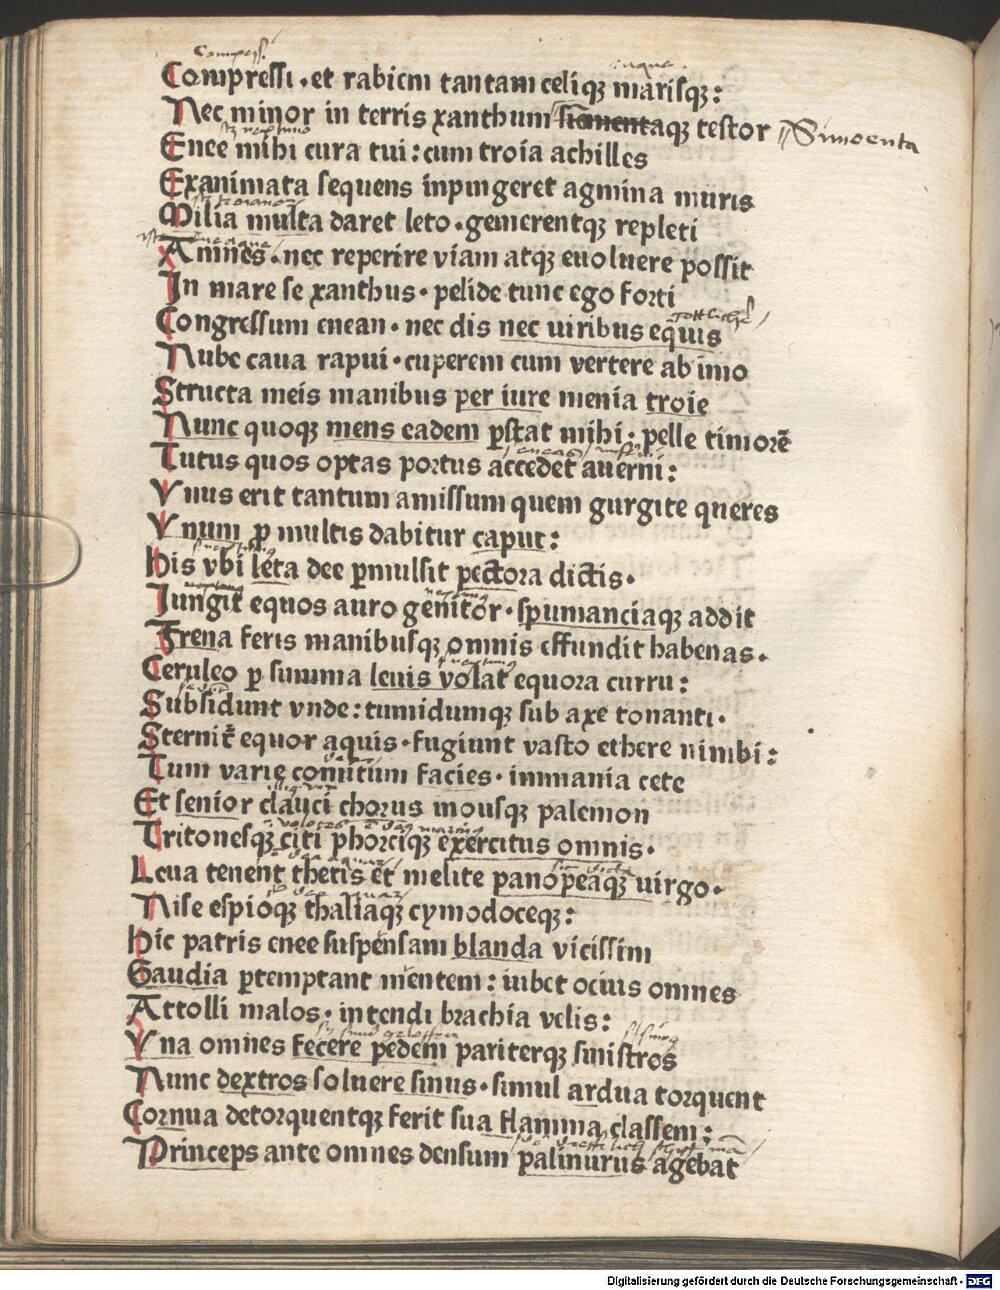 Compressi . et rabiem tantam celiqꝫ marisqꝫ :
Nec minor in terris xanthum simoentaqꝫ testor Simoenta
Enee mihi cura tui : cum troia achilles
Exanimata sequens inpingeret agmina muris
Milia multa daret leto . gemerentqꝫ repleti
Amnes . nec reperire viam atqꝫ euoluere possit
In mare se xanthus . pelide tunc ego forti
Congressum enean . nec dis nec uiribus equis
Nube caua rapui . cuperem cum vertere ab imo
Structa meis manibus per iure menia troie
Nunc quoqꝫ mens eadem ꝑstat mihi : pelle timorē
Tutus quos optas portus accedet auerni :
Vnus erit tantum amissum quem gurgite queres
Vnum ꝑ multis dabitur caput :
His vbi leta dee ꝑmulsit pectora dictis .
Iungit equos auro genitor . spumanciaqꝫ addit
Frena feris manibusqꝫ omnis effundit habenas .
Ceruleo ꝑ summa leuis volat equora curru :
Subsidunt vnde : tumidumqꝫ sub axe tonanti .
Sternit̄ equor aquis . fugiunt vasto ethere nimbi :
Tum varie comitum facies . inmania cete
Et senior clauci chorus inousqꝫ palemon
Tritonesqꝫ citi phorciqꝫ exercitus omnis .
Leua tenent thetis et melite panopeaqꝫ uirgo .
Nise espioqꝫ thaliaqꝫ cymodoceqꝫ :
Hic patris enee suspensam blanda vicissim
Gaudia ꝑtemptant mentem : iubet ocius omnes
Attolli malos . intendi brachia velis :
Vna omnes fecere pedem pariterqꝫ sinistros
Nunc dextros soluere sinus . simul ardua torquent
Cornua detorquentqꝫ ferit sua flamina classem :
Princeps ante omnes densum palinurus agebat
Digitalisierung gefördert durch die Deutsche Forschungsgemeinschaft · DFG